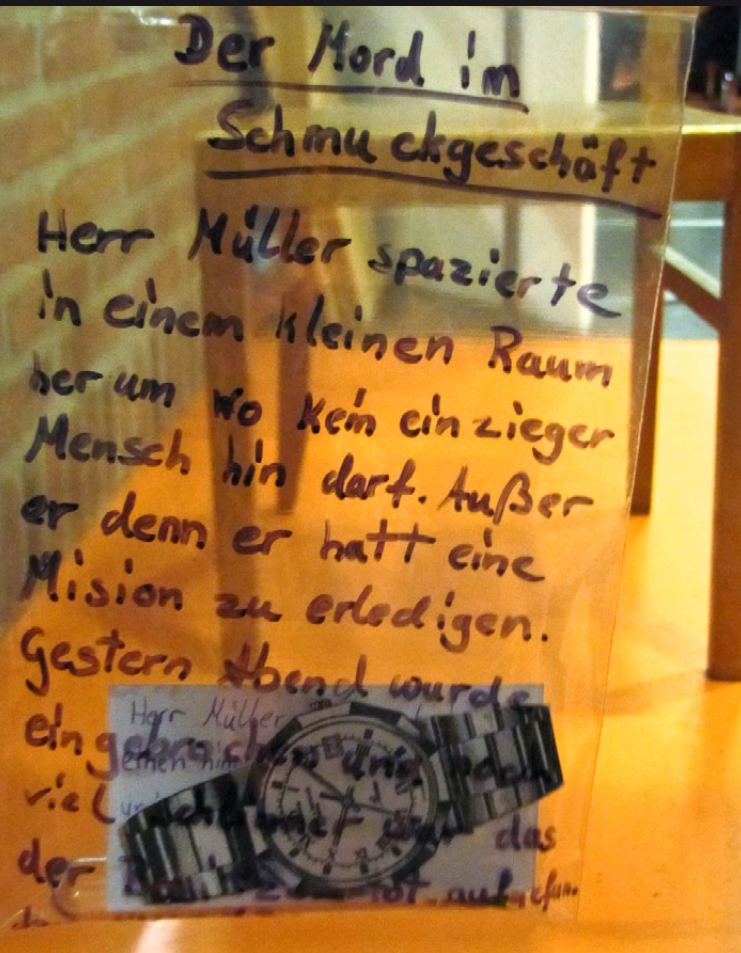 Der Mord im
Schmuckgeschäft
Herr Müller spazierte
in einem kleinen Raum
herum wo kein einzieger
Mensch hin darf. Außer
er denn er hatt eine
Mision zu erledigen.
Gestern Abend wurde
eingebrochen und noch
viel das
der tot aufgefun.
Herr Müller